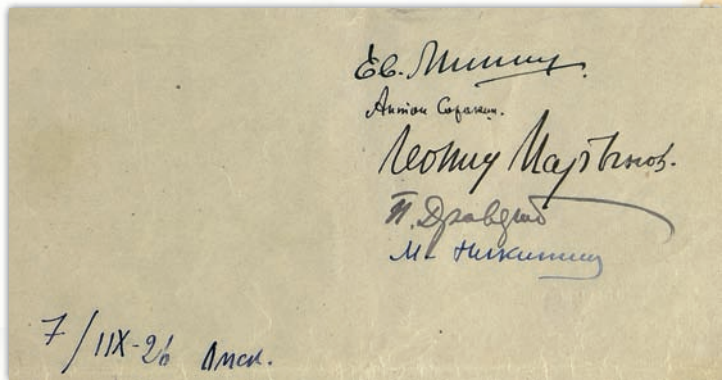 Ев. Минин
Антон Сорокин.
Леонид Мартынов.
П. Драверт
М. Никитин
7/IIX-26 Омск.